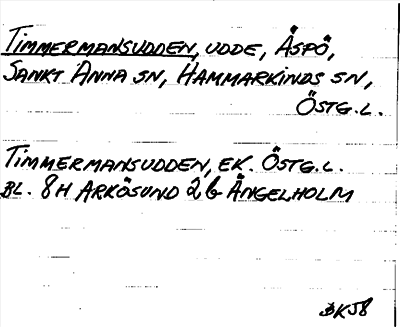 TIMMERMANSUDDEN, UDDE, ÅSPÖ,
SANKT ANNA SN, HAMMARKINDS SN,
ÖSTG.L.
TIMMERMANSUDDEN, EK. ÖSTG.L.
BL. 8H ARKÖSUND 2b ÄNGELHOLM
BKJ8